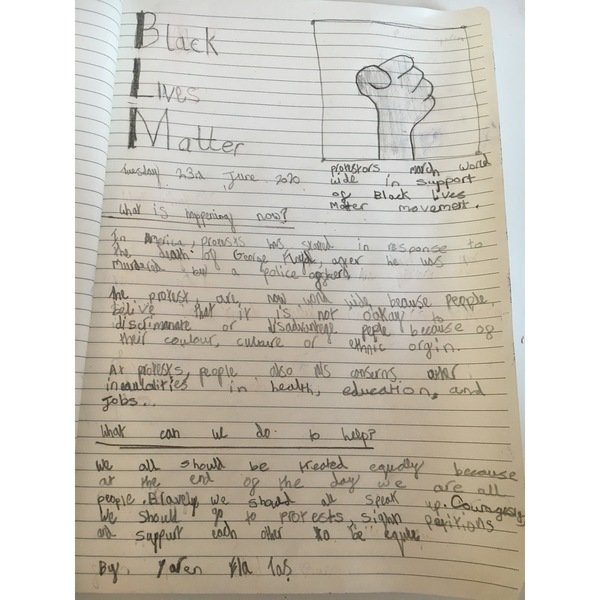 Black
Lives
Matter
Tuesday 23rd June 2020
protestors march world
wide in support
of Black lives
Mater movement.
What is happening now?
In America, protests has in response to
the death of George Floyd, after he was
murdered by a police
the protest are now world wide because people
belive that it is not oakay to
discrimanate or disadvantage people because of
their coulour, culture or ethnic orgin.
At protests, people also concerns over
in health, education, and
Jobs..
What can we do to help?
We all should be treated equally because
at the end of the day we are all
people. Bravely we should all speak up. Couragesly
We should go to protests, petitions
and support each other to be
By, Yaren